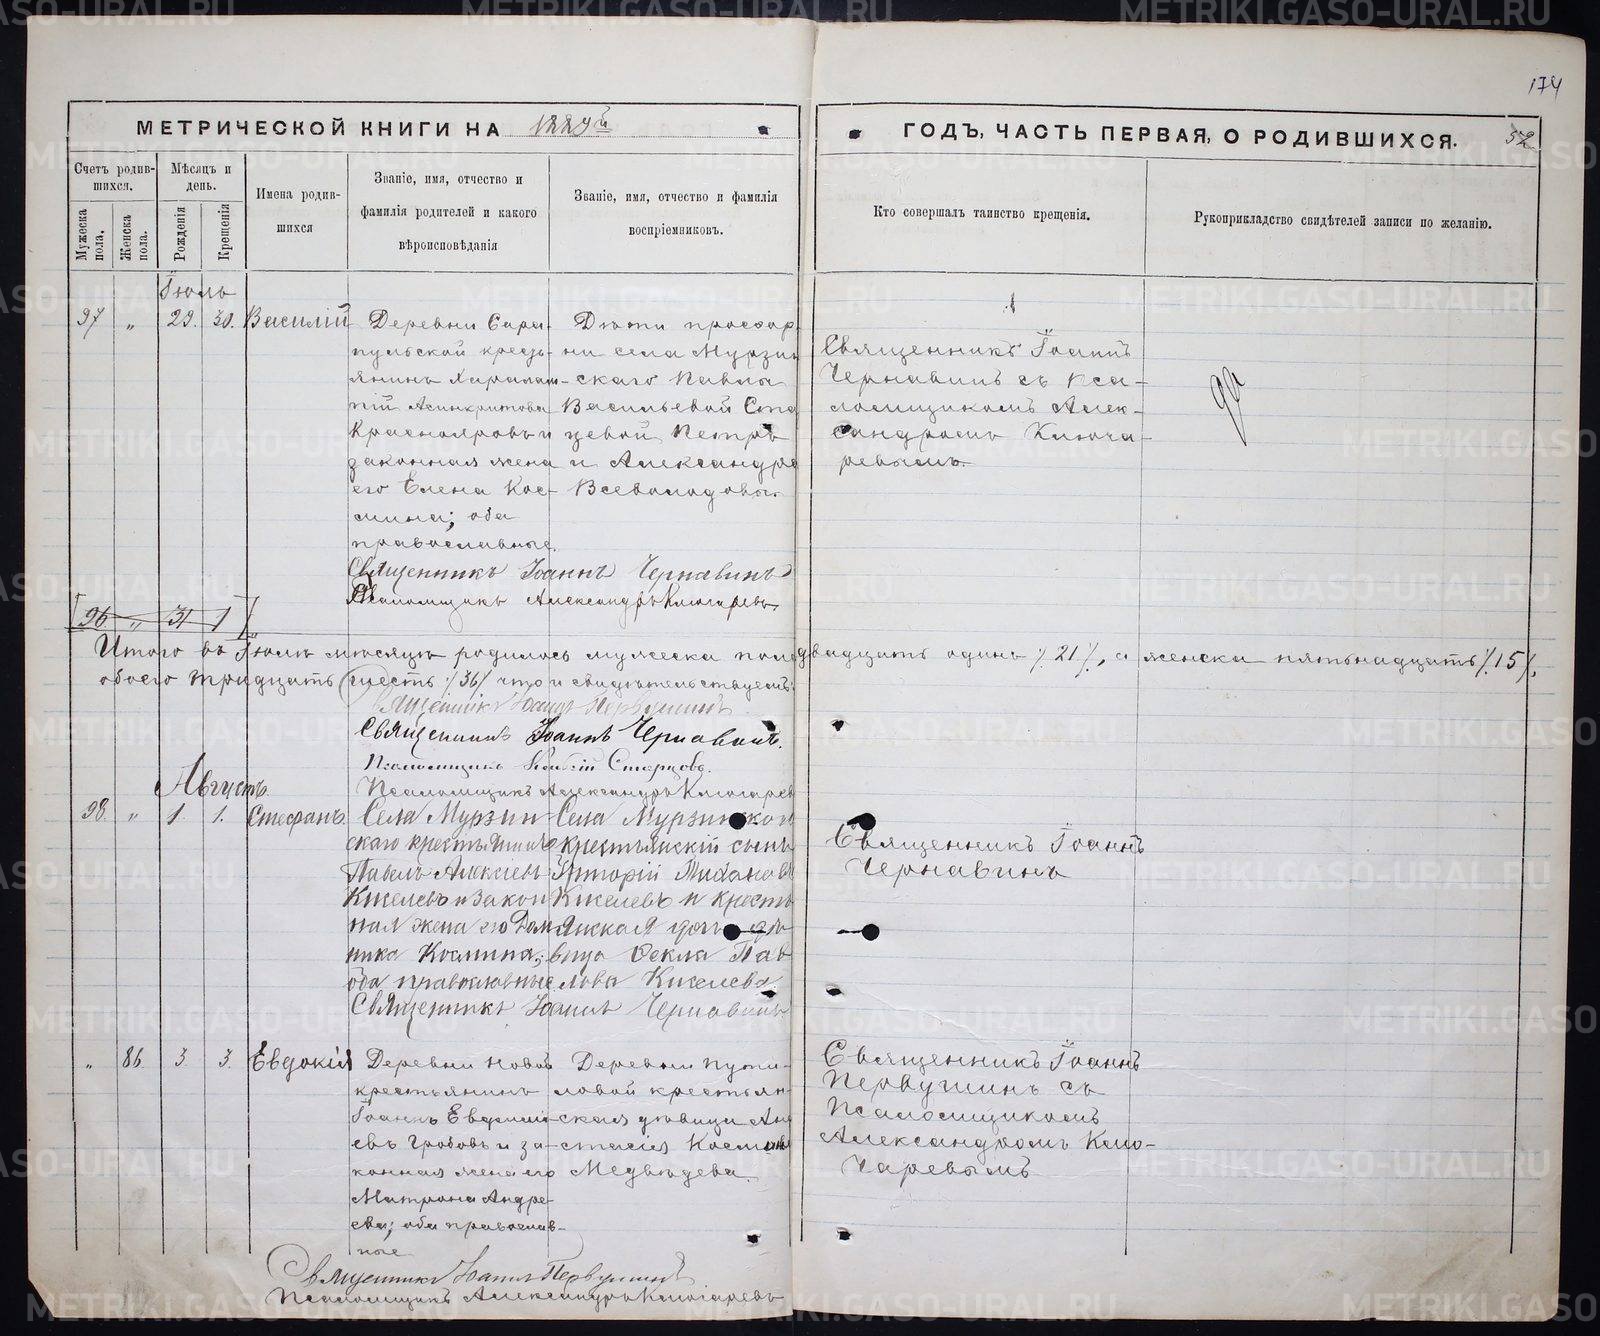 174
МЕТРИЧЕСКОЙ КНИГИ НА 1889й
ГОДЪ, ЧАСТЬ ПЕРВАЯ, О РОДИВШИХСЯ.
Счетъ родив-
шихся.
Мужеска пола.
Женска пола.
Мѣсяцъ и день.
Рожденія
Крещенія
Имена родив-
шихся
Званіе, имя, отчество и
фамилія родителей и какого
вѣроисповѣданія
Званіе, имя, отчество и фамилія
воспріемниковъ.
Кто совершалъ таинство крещенія.
Рукоприкладство свидѣтелей записи по желанію.
Іюль
97 „ 29. 30. Василій
Деревни Сара-
пульской кресть-
янинъ Харалам-
пій Асинкритовъ
Краснояровъ и
законная жена
его Елена Кос-
мина; оба
православные.
Дочь просфор
ни села Мурзин
скаго Павла
Васильевой Ста
цевой Петръ
и Александра
Всеволодовы.
Священникъ Іоаннъ
Чернавинъ съ пса-
ломщикомъ Алек-
сандромъ Ключа-
ревымъ.
Священникъ Іоаннъ Чернавинъ
Псаломщикъ Александръ Ключаревъ
96 „ 31 1
Итого въ Іюлѣ мѣсяцѣ родилось мужеска пола двадцать одинъ /21/, а женска пятнадцать /15/,
обоего тридцать шесть /36/ что и свидѣтельствуемъ:
Священникъ Іоаннъ Первушинъ
Священникъ Іоаннъ Чернавинъ.
Псаломщикъ Старцовъ.
Псаломщикъ Александръ Ключаревъ
Августъ.
98. „ 1. 1. Стефанъ
Села Мурзин-
скаго крестьянинъ
Павелъ Алексіевъ
Киселевъ и закон
ная жена его Дом
ника Космина;
оба православные
Села Мурзинскаго
крестьянскій сынъ
Григорій
Киселевъ и кресть
янская дочь дѣ
вица Ѳекла Пав
лова Киселева.
Священникъ Іоаннъ
Чернавинъ
Священникъ Іоаннъ Чернавинъ
„ 86. 3. 3. Евдокія
Деревни Новой
крестьянинъ
Іоаннъ Евфимі-
евъ Гробовъ и за-
конная жена его
Матрона Андре-
ева; оба православ-
ные
Деревни Пути-
ловой крестьян-
ская дѣвица Ана
стасія Космина
Медвѣдева.
Священникъ Іоаннъ
Первушинъ съ
Псаломщикомъ
Александромъ Клю-
чаревымъ
Священникъ Іоаннъ Первушинъ
Псаломщикъ Александръ Ключаревъ
METRIKI.GASO-URAL.RU